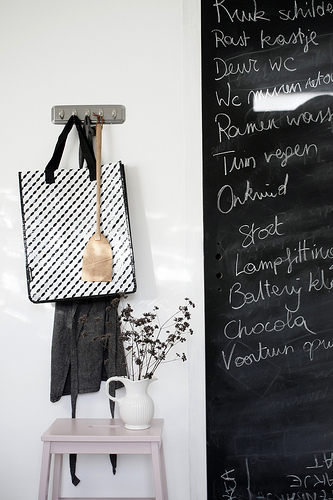 Kruk schilde
Rast kastje
Deur wc
Wc muren
Ramen wass
Tuin vegen
Onkruid
Stoet
Lampfitting
Batterij kl
Chocola
Voortuin opr